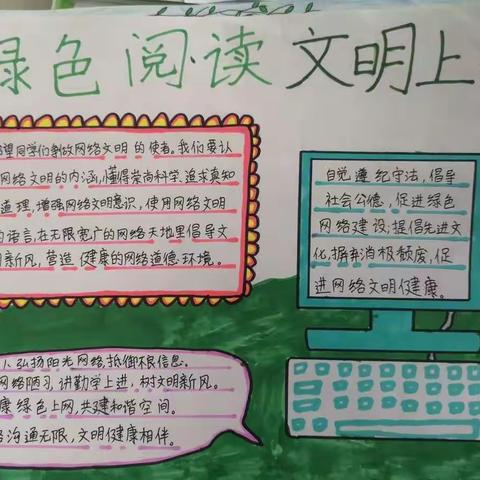 绿色阅读文明上
希望同学们争做网络文明的使者。我们要认
网络文明的内涵,懂得崇尚科学、追求真知
道理,增强网络文明意识,使用网络文明
的语言,在无限宽广的网络天地里倡导文
明新风,营造健康的网络道德环境。
自觉遵纪守法,倡导
社会公德,促进绿色
网络建设;提倡先进文
化,摒弃消极颓废,促
进网络文明健康。
人、弘扬阳光网络,抵御不良信息。
网络陋习,讲勤学上进,树文明新风。
康绿色上网,共建和谐空间。
络沟通无限,文明健康相伴。